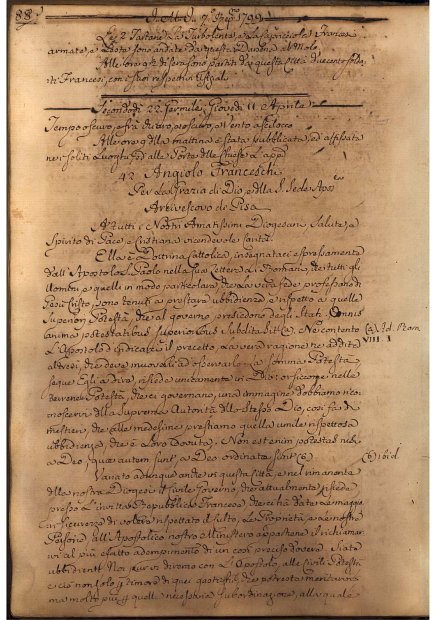 88
Le 2 Tartane La Turbolante, e La Capricciosa Francesi
armate, e Bote sono andate da questa Dursena al Molo.
Alle ore di sera sono partiti da questa Città duecento sol
ti Francesi, con i suoi respettivi Ufiziali.
Secondo dì 22. Germile, Giovedì 11 Aprile
Tempo oscuro, e frà duro, e oscuro, e Vento a Scilocco
Alle ore 9 della mattina è stata pubblicata, ed affissata
nei soliti Luoghi, ed alle Porte delle Chiese La app.
42. Angiolo Franceschi
Per La Grazia di Dio, e della S. Sede Apos.
Arcivescovo di Pisa
A Tutti i Nostri Amatissimi Diogesani Salute, e
Spirito di Pace, e Cristiana vicendevole carità.
Ella è Dottrina Cattolica, insegnataci espressamente
dall' Apostolo S. Paolo nella sua Lettera ai Romani, che tutti gli
Uomini, e quelli in modo particolare, che La vera fede professano di
Gesù Cristo, sono tenuti a prestare ubbidienza, e rispetto a quelle
Superiori Potestà, che al governo presiedono degli Stati. Omnis
anima potestatibus superioribus Subdita Sit (a). Nè contento
L'Apostolo d'indicare il precetto, La vera ragione ne addita
altresì, che deve muoverli ad osservarlo. La Somma Potestà
segue Egli a dire, risiede unicamente in Dio: or siccome nelle
Terrene Potestà, che ci governano, una immagine dobbiamo rico
noscervi della Suprema Autorità dello Stesso Dio, così fa di
mestieri, che alle medesime prestiamo quella umile rispettosa
ubbidienza, che è a Loro dovuta. Non est enim potestas nisi
a Deo, quae autem sunt, a Deo ordinata sunt (b)
(a) Ad. Rom
VIII. 1
(b) ibid.
Variato adunque anche in questa Città, e nel rimanente
della nostra Diogesi il Civile Governo, che attualmente risiede
presso L'invitta Repubblica Francese, che ci ha date Le maggio
ri sicurezze di volere rispettato il Culto, Le Proprietà, e Le nostre
Persone, all'Apostolico nostro Ministero appartiene il richiamar
vi al più esatto adempimento di un così preciso dovere. Siate
ubbidienti Noi pure vi diremo con L'Apostolo, alle Civili Potestà
e ciò non solo per timore di quei gastighi, che potreste meritarvi
ma molto più per quella necessaria Subordinazione, alla quale